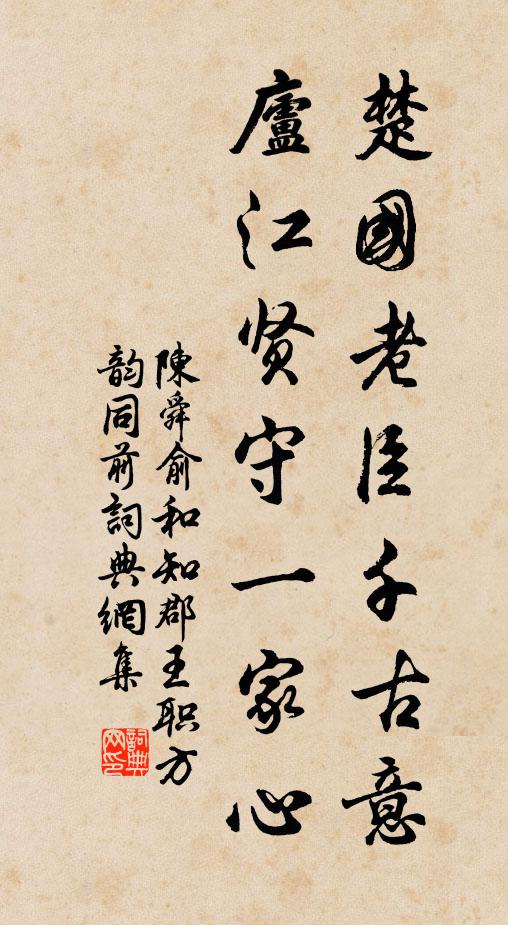 楚國老臣千古意
廬江贤守一家心
陳舜俞和知郡王职方
韵同前詞典網集
詞典网印